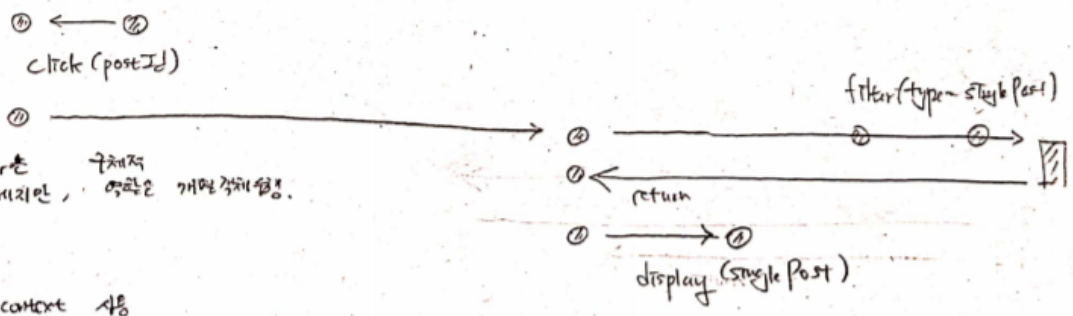 click (postId)
filter (type = single Post)
구체적
역할은 개별 객체 실행.
return
display (single Post)
context 사용